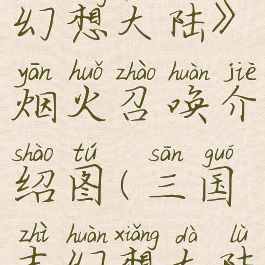 幻想大陆》
yān huǒ zhào huàn jiè
烟火召唤介
shào tú sān guó
绍图(三国
zhì huàn xiǎng dà lù
志幻想大陆